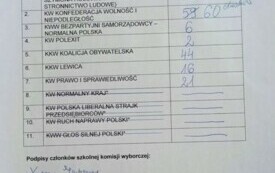 STRONNICTWO LUDOWE)
2. KW KONFEDERACJA WOLNOŚĆ I NIEPODLEGŁOŚĆ 60
3. KWW BEZPARTYJNI SAMORZĄDOWCY – NORMALNA POLSKA 6
4. KW POLEXIT 2
5. KKW KOALICJA OBYWATELSKA 44
6. KW LEWICA 16
7. KW PRAWO I SPRAWIEDLIWOŚĆ 21
8. KW NORMALNY KRAJ
9. KW POLSKA LIBERALNA STRAJK PRZEDSIĘBIORCÓW*
10. KW RUCH NAPRAWY POLSKI*
11. KWW GŁOS SILNEJ POLSKI*
Podpisy członków szkolnej komisji wyborczej: